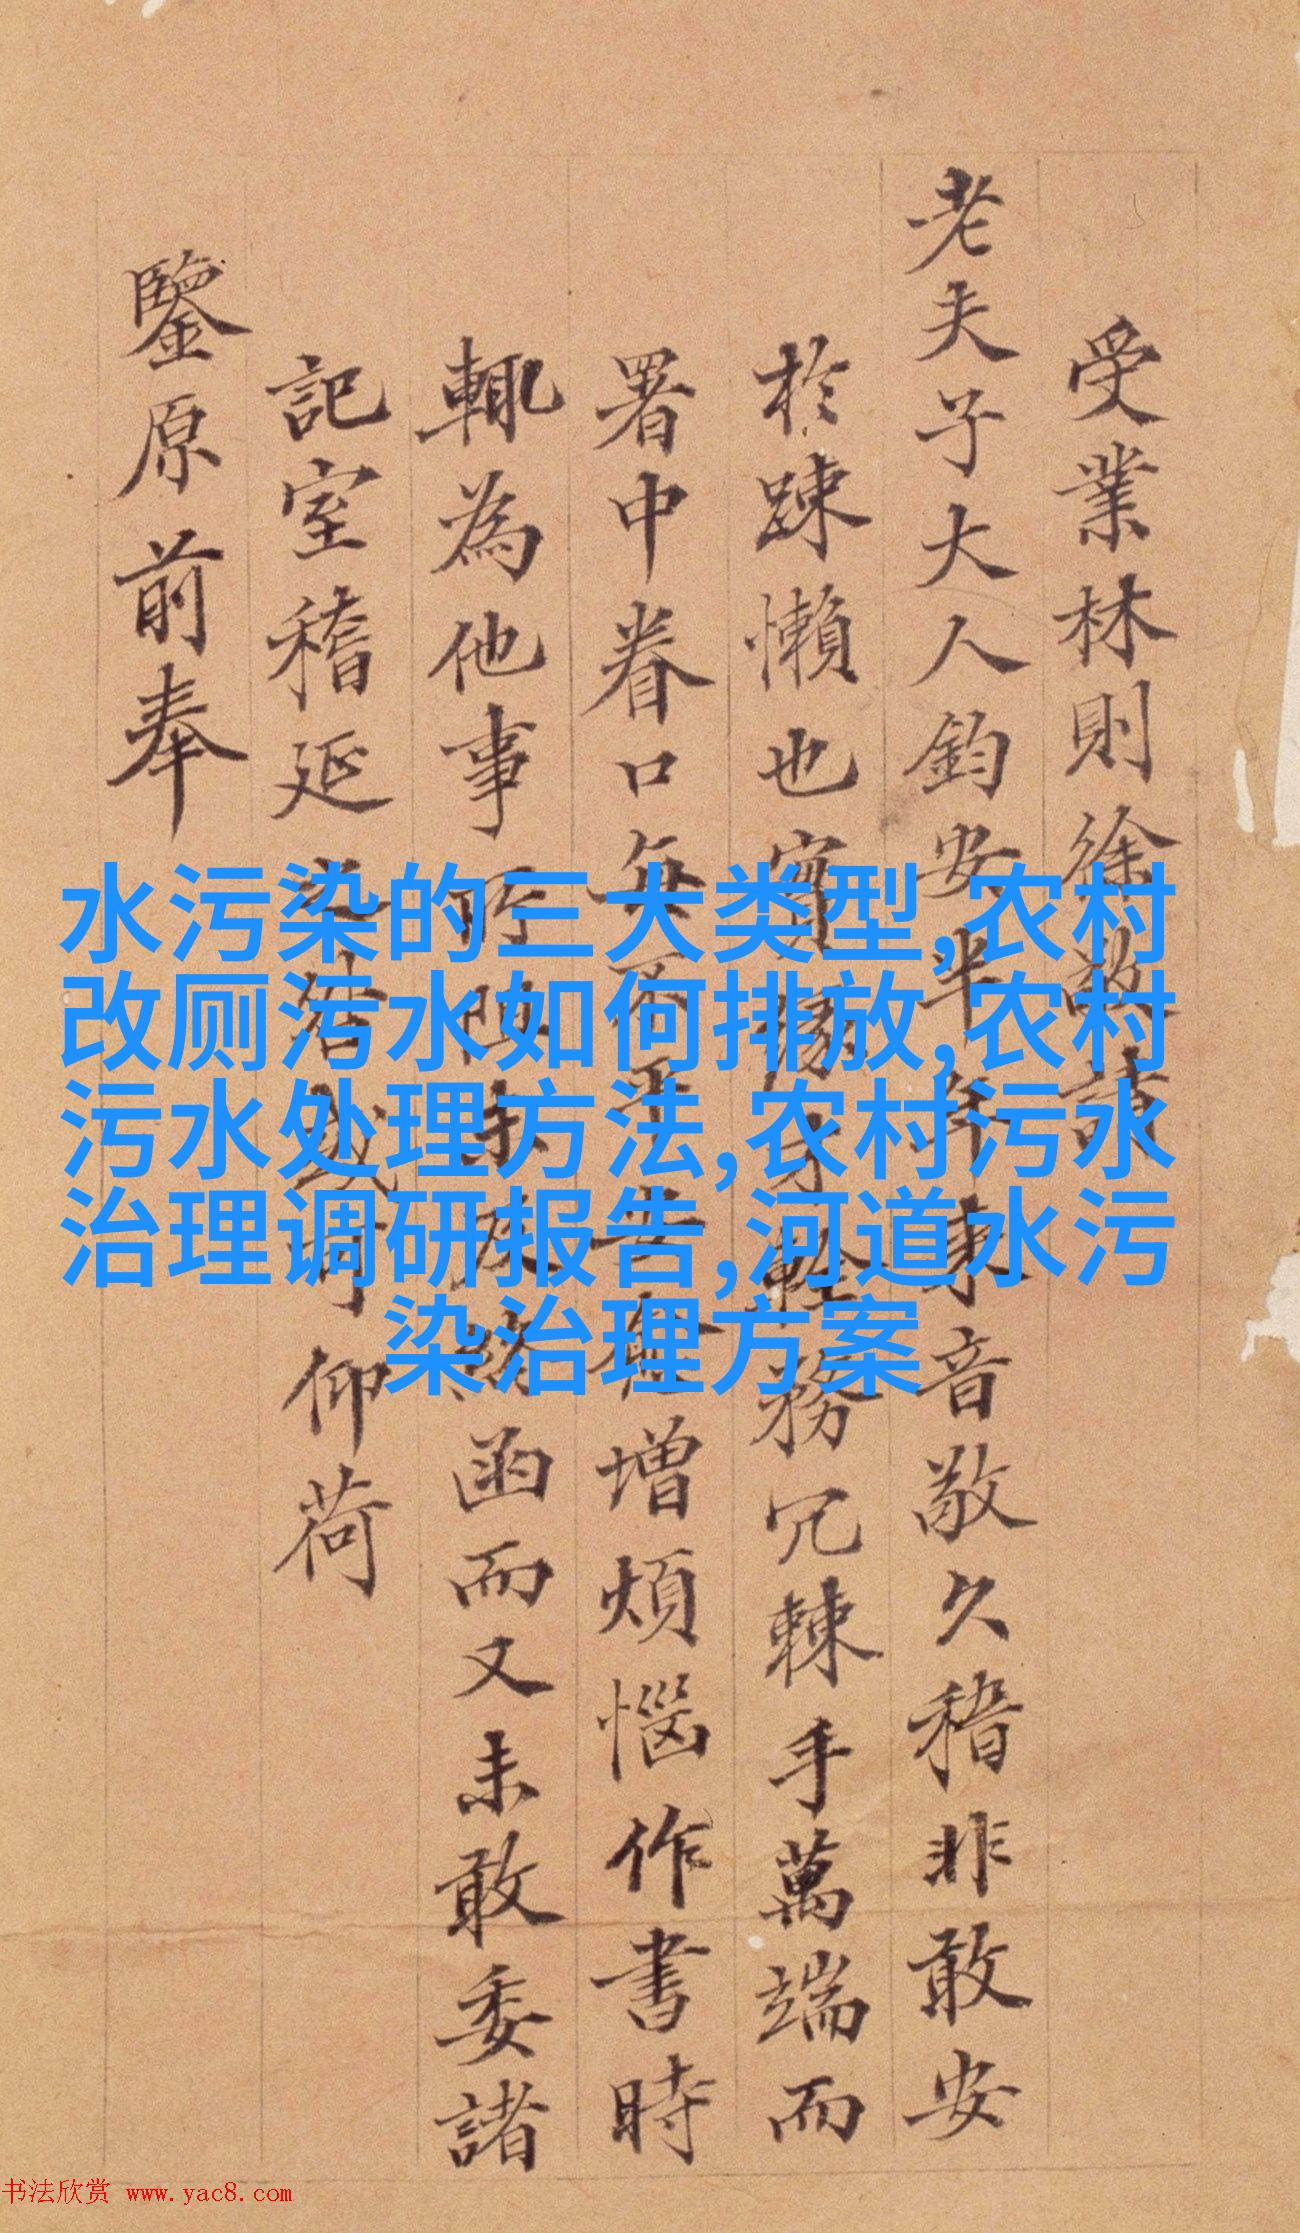 受業林則徐敬請
老夫子大人鈞安半年來音敬久稽非敢安
於踈懶也實緣才輇務冗棘手萬端而
署中眷口每不平安愈增煩惱作書時
輒為他事所阻未及緘函而又未敢委諸
記室稽延之咎或可仰荷
鑒原前奉
水污染的三大类型,农村
改厕污水如何排放,农村
污水处理方法,农村污水
治理调研报告,河道水污
染治理方案
书法欣赏 www.yac8.com